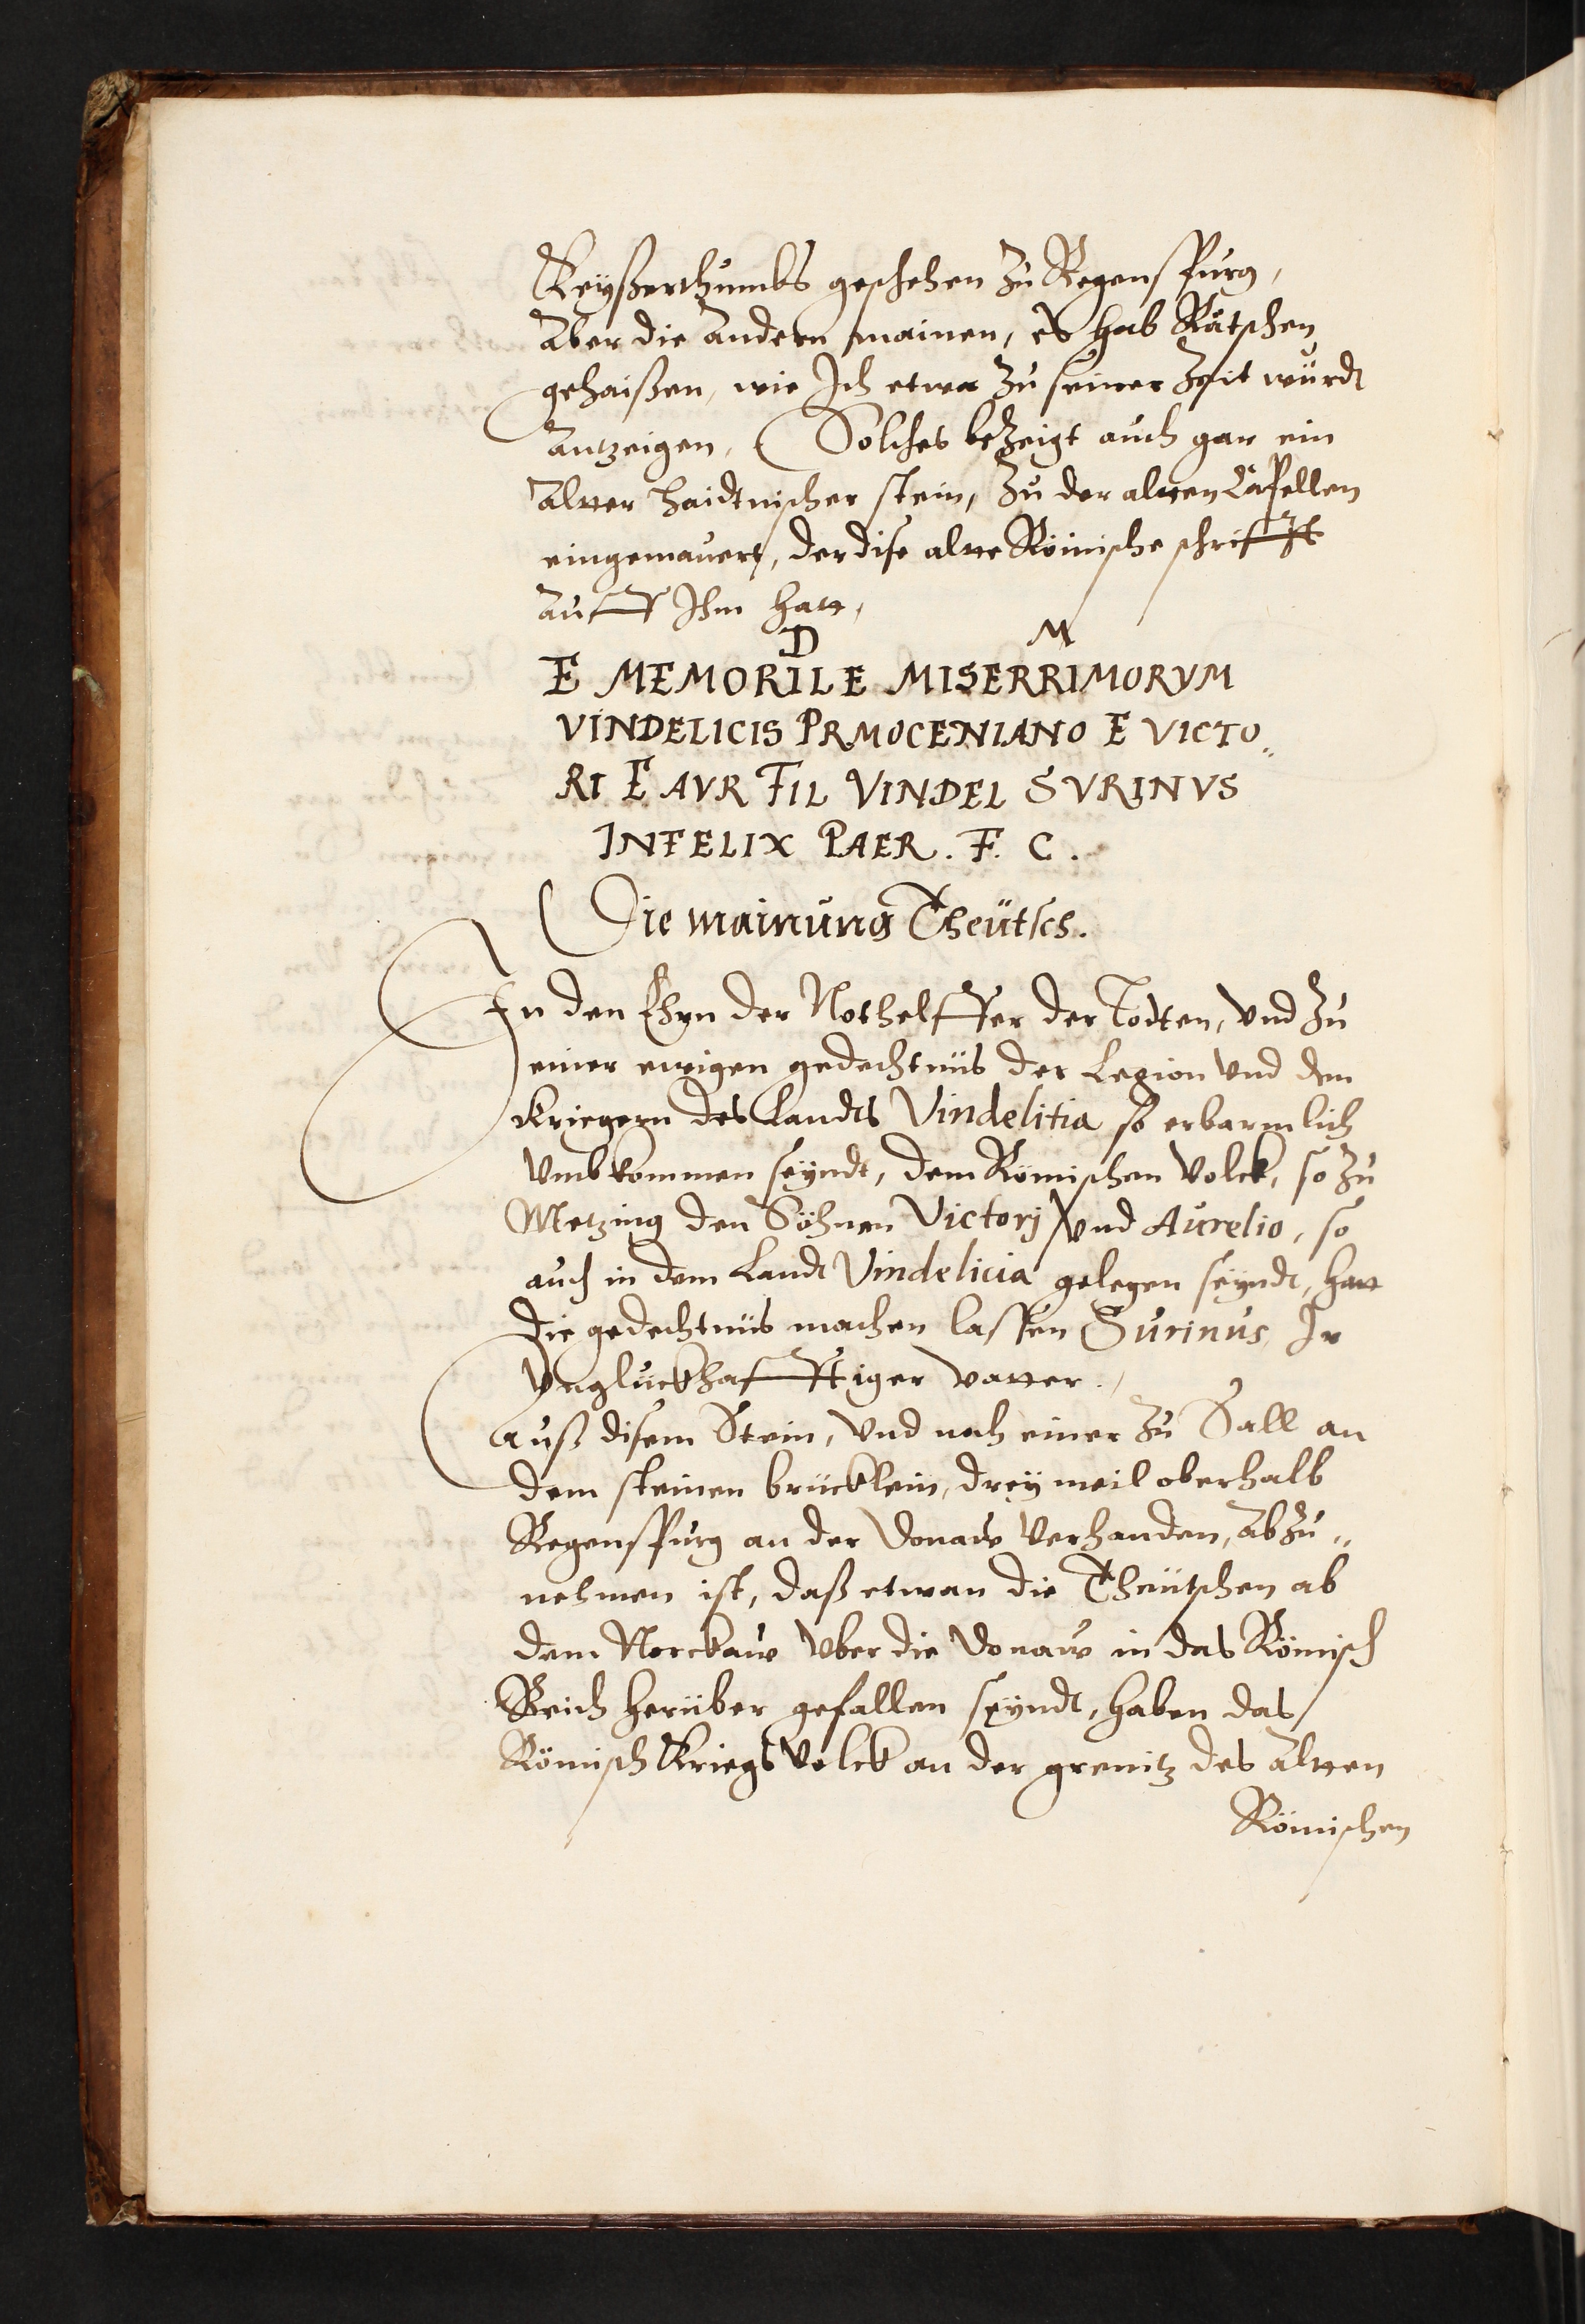 Keyßerthumbs geschehen zu Regenspurg,
Aber die Andern mainen, es hab Rätschen
gehaißen, wie Ich etwa zu seiner Zeit würdt
Antzeigen, Solches bezeigt auch gar ein
Alter haidtnischer stein, zu der alten Capellen
eingemauert, der dise alte Römische schrifft
Auff Ihm hatt,
D M
E MEMORILE MISERRIMORVM
VINDELICIS PRMOCENIANO E VICTO„
RI E AVR FIL VINDEL SVRINVS
INFELIX PAER. F. C.
Die mainung Theütsch.
In den Ehrn der Nothelffer der Todten, vnd zu
einer ewigen gedechtnüs der Legion vnd den
kriegern des Landts Vindelitia so erbarmlich
vmbkommen seyndt, dem Römischen Volck, so zu
Metzing den Söhnen Victorj vnd Aurelio, so
auch in dem Landt Vindelicia gelegen seyndt, hatt
die gedechtnüs machen lassen Surinus, Ir
Vngluckhafftiger Vatter.
Auß disem Stein, vnd noch einer zu Sall an
dem steinen brücklein, drey meil oberhalb
Regenspurg an der Donaw verhanden, abzu„
nehmen ist, daß etwan die Theütschen ab
dem Norckaw vber die Donaw in das Römisch
Reich herüber gefallen seyndt, haben das
Römisch Kriegs Volck an der grenitz des Alten
Römischen